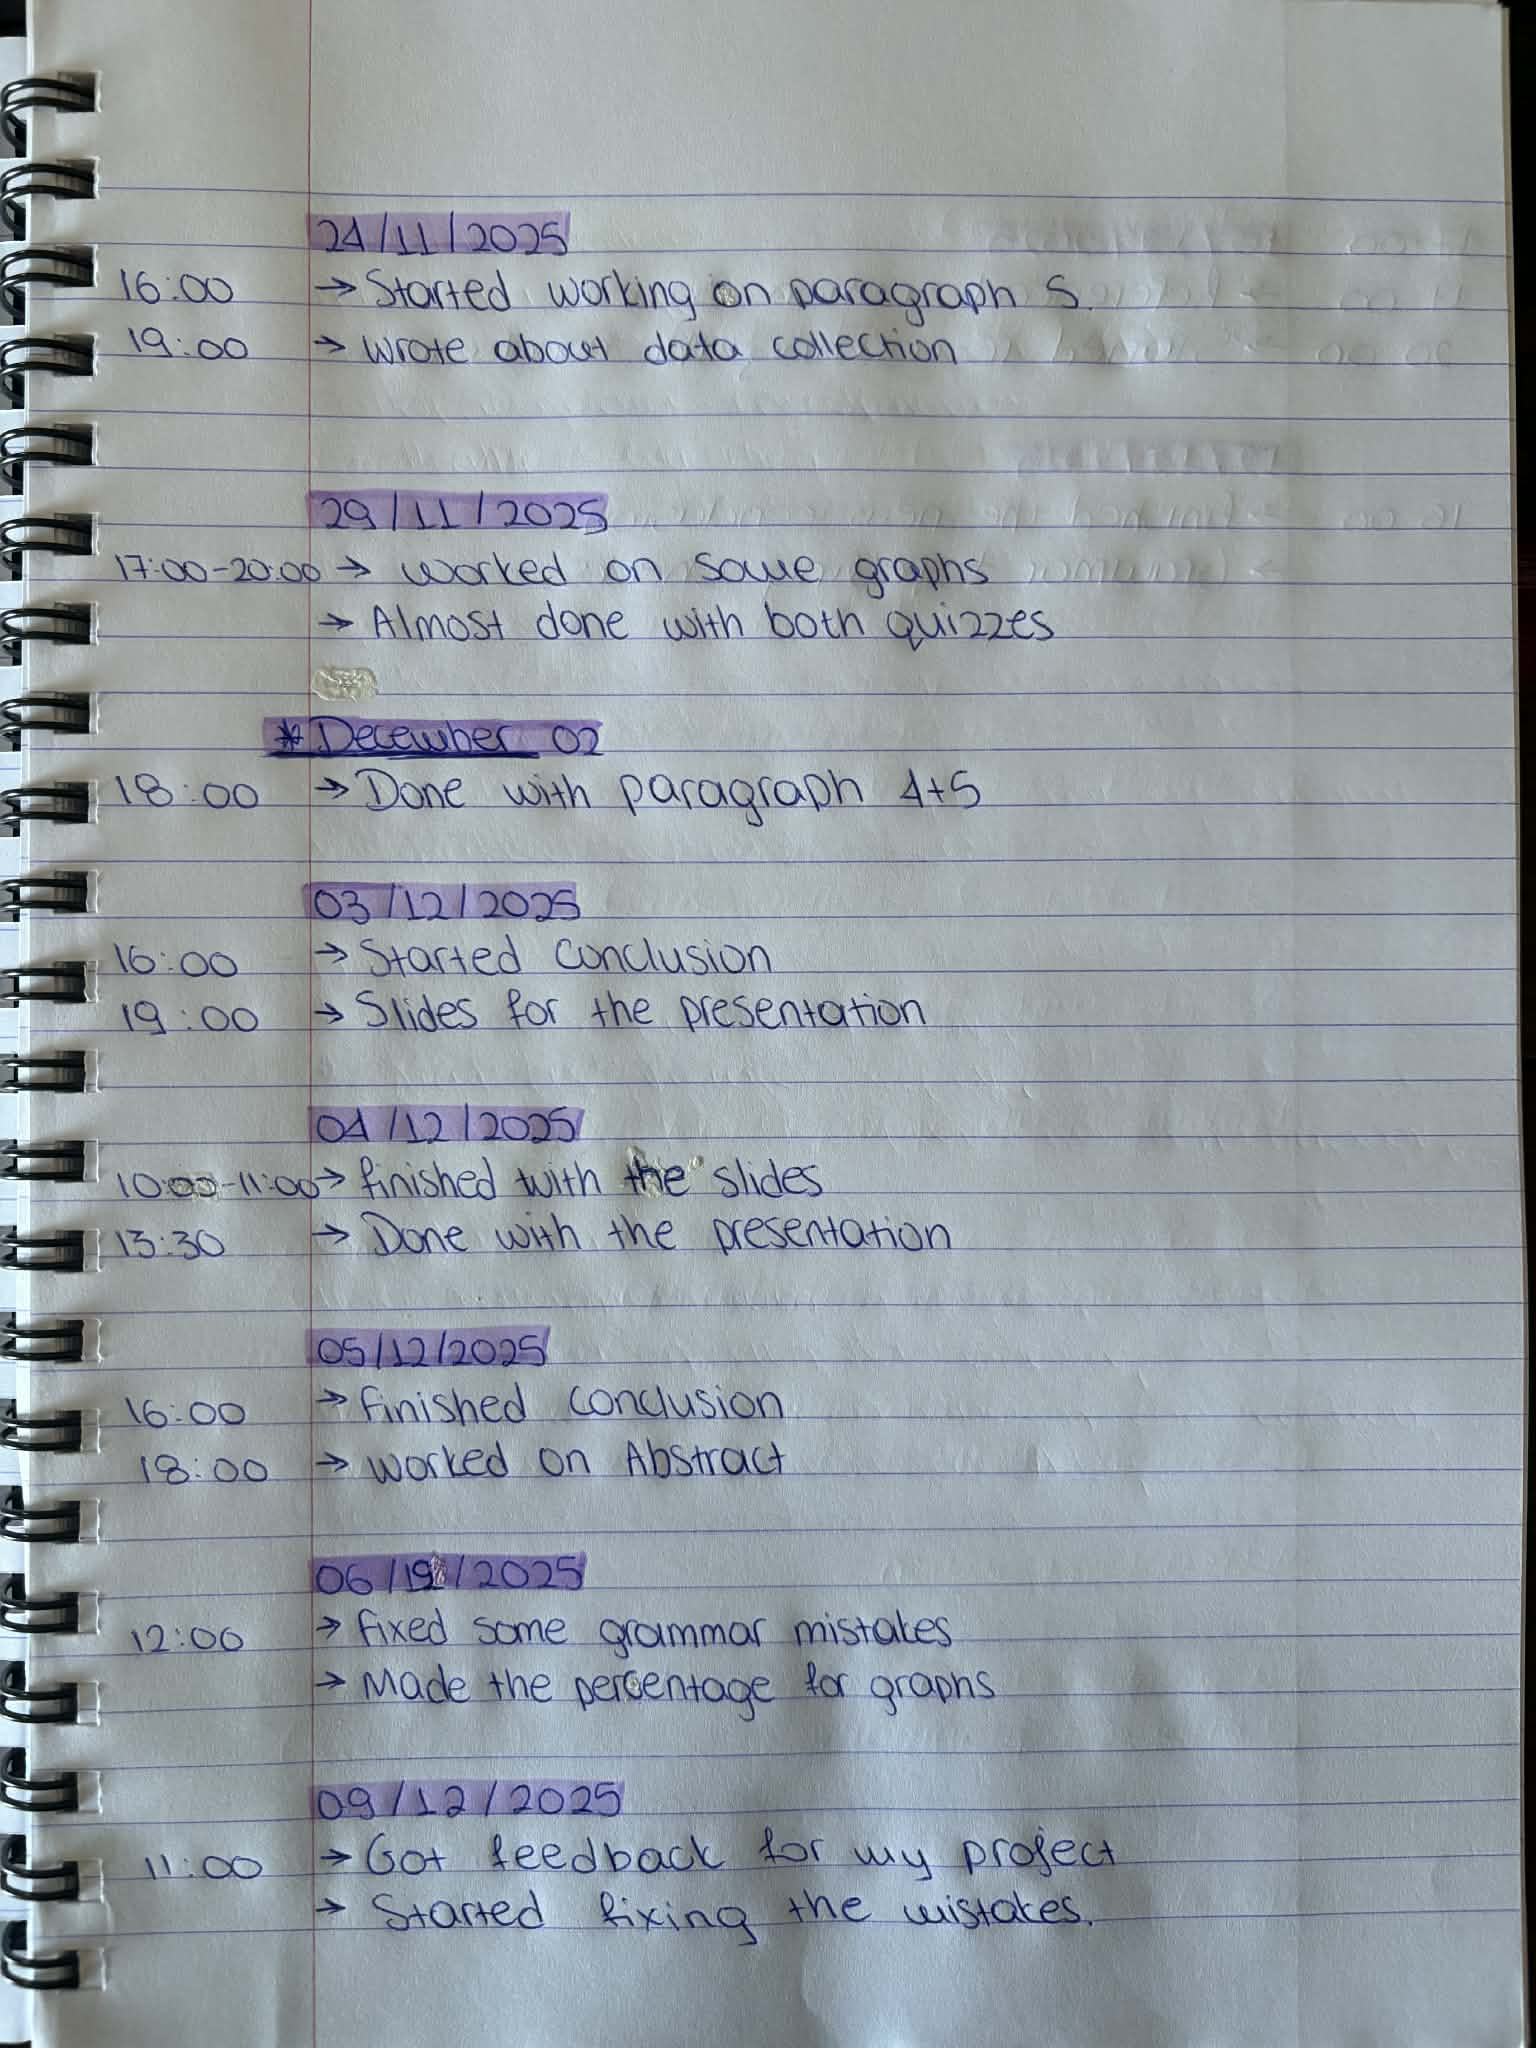 24/11/2025
16:00 → Started working on paragraph 5.
19:00 → Wrote about data collection
29/11/2025
17:00-20:00 → Worked on some graphs
→ Almost done with both quizzes
* December 02
18:00 → Done with paragraph 4+5
03/12/2025
16:00 → Started conclusion
19:00 → Slides for the presentation
04/12/2025
10:00-11:00 → finished with the slides
13:30 → Done with the presentation
05/12/2025
16:00 → finished conclusion
18:00 → worked on Abstract
06/12/2025
12:00 → fixed some grammar mistakes
→ Made the percentage for graphs
09/12/2025
11:00 → Got feedback for my project
→ Started fixing the mistakes.